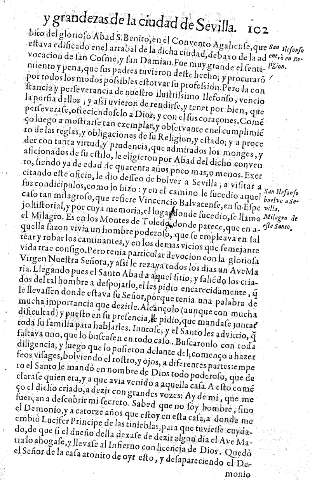 y grandezas de la ciudad de Sevilla. 102
bito del glorioso Abad S. Benito, en el Convento Agaliense, que
estava edificado en el arrabal de la dicha ciudad, debaxo de la ad
vocacion de san Cosme, y san Damian. Fue muy grande el senti-
miento y pena, que sus padres tuvieron deste hecho; y procuraró
por todos los modos possibles estorvar su profession. Pero la con
stancia y perseverancia de nuestro Ilustrissimo Ilefonso, vencio
la porfia dellos, y assi uvieron de rendirse, y tener por bien, que
perseverase, ofreciendoselo a Dios, y con el sus coraçones. Començ
ço luego a mostrarse tan exemplar, y observante en el cumplimiē
to de las reglas, y obligaciones de su Religion, y estado; y a proce
der con tanta virtud, y prudencia, que admirados los monges, y
aficionados de su estilo, le eligieron por Abad del dicho conven
to, siendo ya de edad de quarenta años poco mas, o menos. Exer
citando este oficio, le dio desseo de bolver a Sevilla, a visitar a
sus condicipulos, como lo hizo: y en el camino le sucedio aquel
caso tan milagroso, que refiere Vincencio Balvacense, en su Espe
jo historial, y por cuya memoria, el lugar donde sucedio, se llama
el Milagro. Es en los Montes de Toledo, donde parece, que en a-
quella sazon vivia un hombre poderoso, que se empleava en sal
tear y robar los caminantes, y en los demas vicios que semejante
vida trae consigo. Pero tenia particular devocion con la gloriosa
Virgen Nuestra Señora, y assi le rezava todos los dias un Ave Ma
ria. Llegando pues el Santo Abad a aquel sitio, y salidos los cria-
dos del tal hombre a despojarlo, el les pidio encarecidamente, q̃
le llevassen donde estava su Señor, porque tenia una palabra de
mucha importancia que dezirle. Alcançolo (aunque con mucha
dificultad) y puesto en su presencia, le pidio, que mandase juntar
toda su familia para hablarles. Iuntose, y el Santo les advirtio, q̃
faltava uno, que lo buscasen en todo caso. Buscaronlo con toda
diligencia, y luego que lo pusieron delante del, començo a hazer
feos visages, bolviendo el rostro, y ojos, a diferentes partes: siempre
el Santo le mandò en nombre de Dios todo poderoso, que de
clarase quien era, y a que avia venido a aquella casa. A esto comē
ço el dicho criado, a dezir con grandes vozes: Ay de mi, que me
fuerçan a descubrir mi secreto. Sabed que no soy hombre, sino
el Demonio, y a catorze años que estoy en esta casa, a donde me
embiò Lucifer Principe de las tinieblas, para que tuviesse cuyda-
do, de que si el dueño della dexase de dezir algun dia el Ave Ma-
ria, lo ahogase, y llevase al Infierno con licencia de Dios. Quedò
el Señor de la casa atonito de oyr esto, y desapareciendo el De-
monio
San Ilefonso
San Ilefonso
Milagro de
este Santo.